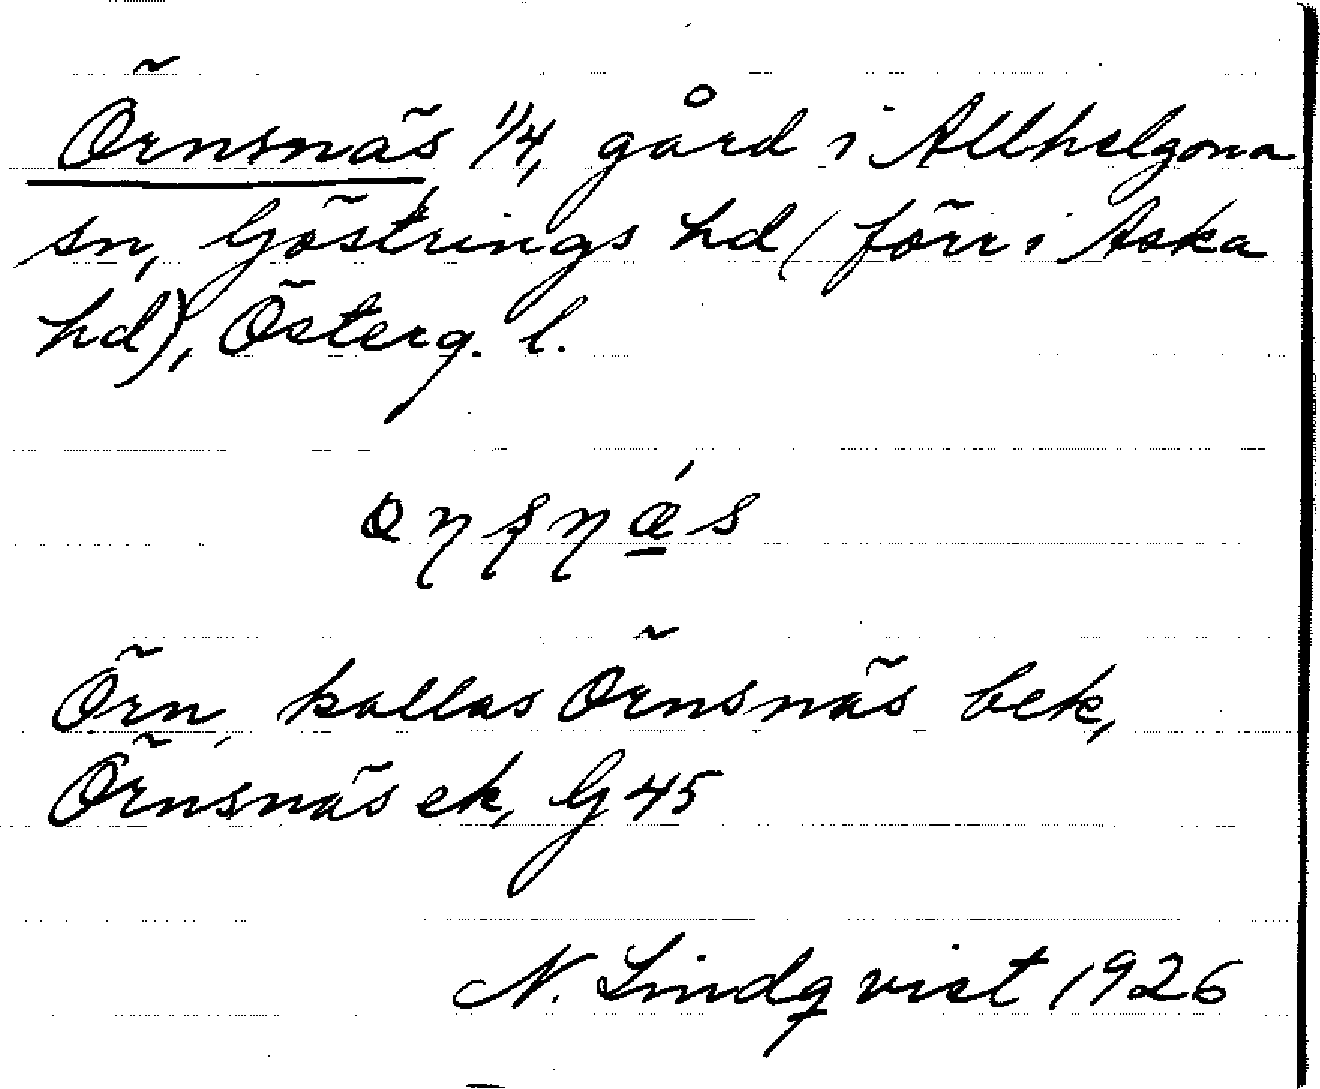 Örnsnäs 1/4, gård i Allhelgona
sn, Göstrings hd (förr i Aska
hd), Österg. l.
Örn, kallas Örnsnäs bek,
Örnsnäs ek, G 45
N. Lindqvist 1926